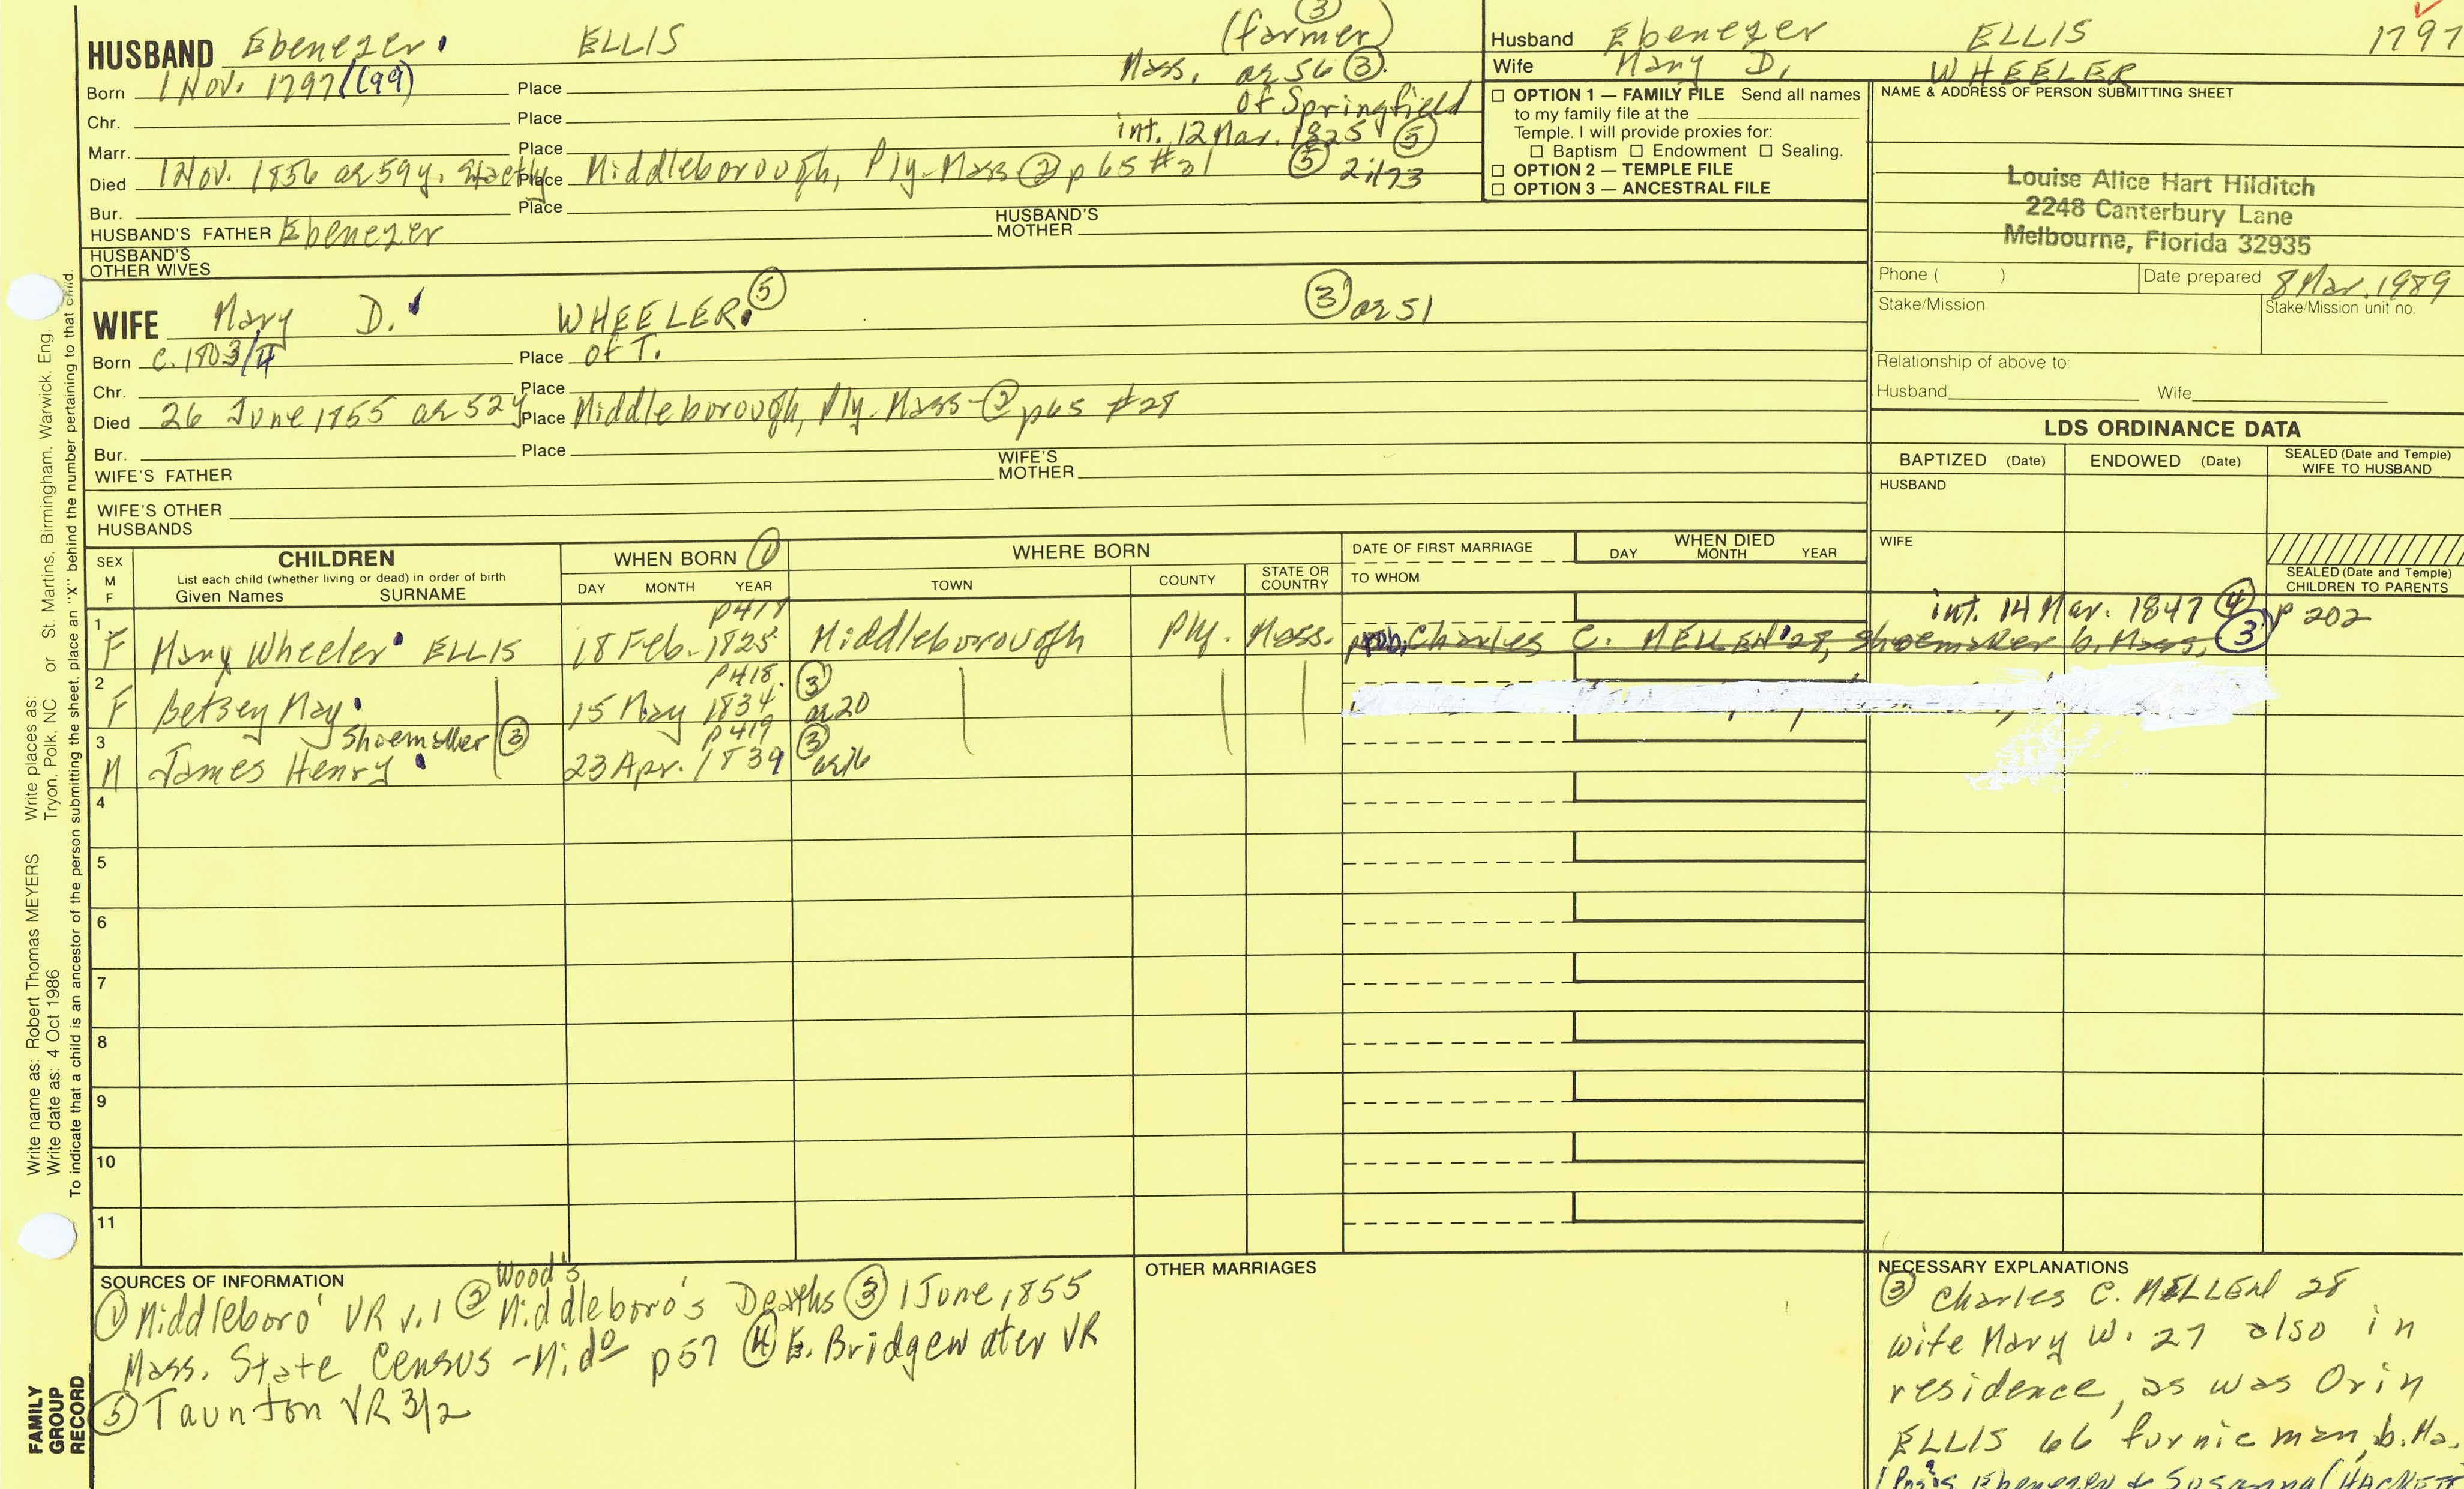 (3)
HUSBAND Ebenezer ELLIS (farmer)
Mass. ae 56 (3).
Born 1 Nov. 1797/(99) Place of Springfield
Chr. Place int. 12 Mar. 1825 (5)
Marr. Place
Died 1 Nov. 1856 ae 59y. exactly Place Middleborough, Ply-Mass (2) p 65 #31 (5) 2i173
Bur. Place
HUSBAND'S FATHER Ebenezer HUSBAND'S MOTHER
HUSBAND'S OTHER WIVES
WIFE Mary D. WHEELER (5) (3) ae 51
Born c. 1803/4 Place of T.
Chr. Place
Died 26 June 1855 ae 52y Place Middleborough, Ply-Mass-(2) p65 #28
Bur. Place
WIFE'S FATHER WIFE'S MOTHER
WIFE'S OTHER HUSBANDS
Husband Ebenezer ELLIS 1797
Wife Mary D. WHEELER
☐ OPTION 1 — FAMILY FILE Send all names
to my family file at the
Temple. I will provide proxies for:
☐ Baptism ☐ Endowment ☐ Sealing.
☐ OPTION 2 — TEMPLE FILE
☐ OPTION 3 — ANCESTRAL FILE
NAME & ADDRESS OF PERSON SUBMITTING SHEET
Louise Alice Hart Hilditch
2248 Canterbury Lane
Melbourne, Florida 32935
Phone ( ) Date prepared 8 Mar. 1989
Stake/Mission Stake/Mission unit no.
Relationship of above to:
Husband Wife
LDS ORDINANCE DATA
BAPTIZED (Date) ENDOWED (Date) SEALED (Date and Temple) WIFE TO HUSBAND
HUSBAND
WIFE
SEALED (Date and Temple)
CHILDREN TO PARENTS
SEX M F CHILDREN
List each child (whether living or dead) in order of birth
Given Names SURNAME
WHEN BORN (1)
DAY MONTH YEAR
WHERE BORN
TOWN COUNTY STATE OR COUNTRY
DATE OF FIRST MARRIAGE
TO WHOM
WHEN DIED
DAY MONTH YEAR
p418 int. 14 Mar. 1847 (4) p 202
1 F Mary Wheeler ELLIS 18 Feb. 1825 Middleborough Ply. Mass. prob. Charles C. MELLEN 28, shoemaker b. Mass. (3)
p418. (3)
2 F Betsey May 15 May 1834 ae 20
Shoemaker (3) p419 (3)
3 M James Henry 23 Apr. 1839 ae 16
4
5
6
7
8
9
10
11
SOURCES OF INFORMATION Wood's
(1) Middleboro' VR v.1 (2) Middleboro's Deaths (3) 1 June 1855
Mass. State Census - Mido p57 (4) E. Bridgewater VR
(5) Taunton VR 3/2
OTHER MARRIAGES
NECESSARY EXPLANATIONS
(3) Charles C. MELLEN 28
wife Mary W. 27 also in
residence, as was Orin
ELLIS 66 furnice man, b. Ma.
Ebenezer & Susanna (HACKETT
Write name as: Robert Thomas MEYERS Write places as: St. Martins, Birmingham, Warwick, Eng.
Write date as: 4 Oct 1986 Tryon, Polk, NC or
To indicate that a child is an ancestor of the person submitting the sheet, place an "X" behind the number pertaining to that child.
FAMILY
GROUP
RECORD